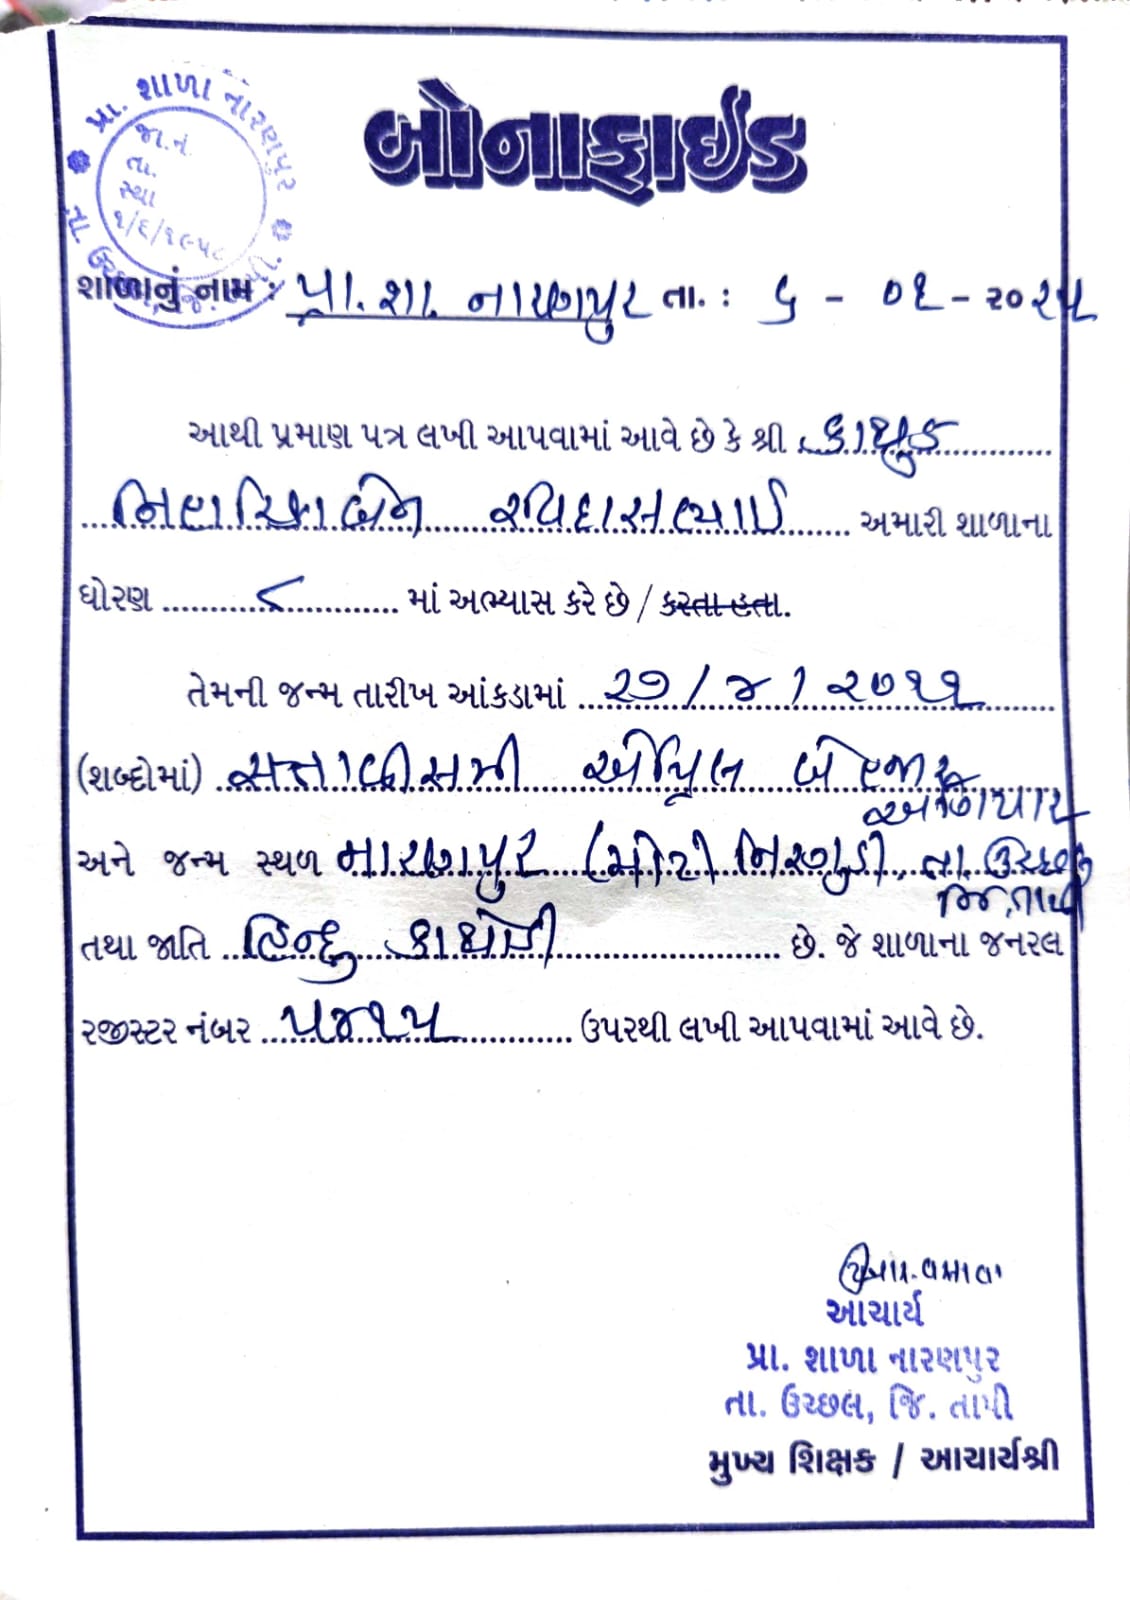 પ્રા. શાળા નારણપુર
જા.નં.
તા.
સ્થા
૧/૬/૧૯૫૮
બોનાફાઈડ
શાળાનું નામ : પ્રા. શા. નારણપુર તા. : ૬ - ૦૧ - ૨૦૨૫
આથી પ્રમાણ પત્ર લખી આપવામાં આવે છે કે શ્રી કાથુડ
નિહારિકાબેન રવિદાસભાઈ અમારી શાળાના
ધોરણ ૮ માં અભ્યાસ કરે છે / કરતા હતા.
તેમની જન્મ તારીખ આંકડામાં ૨૭/૪/૨૦૧૧
(શબ્દોમાં) સત્તાવીસમી એપ્રિલ બે હજાર
અગિયાર
અને જન્મ સ્થળ નારણપુર (મીરા નિરગુડી, તા. ઉચ્છલ
જિ. તાપી
તથા જાતિ હિન્દુ કાથોડી છે. જે શાળાના જનરલ
રજીસ્ટર નંબર ૫૪૧૫ ઉપરથી લખી આપવામાં આવે છે.
આચાર્ય
પ્રા. શાળા નારણપુર
તા. ઉચ્છલ, જિ. તાપી
મુખ્ય શિક્ષક / આચાર્યશ્રી